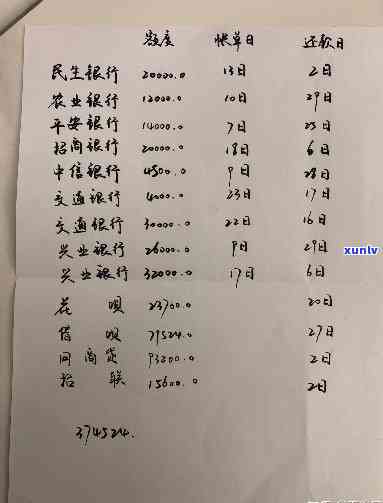 额度 帐单日 还款日
民生银行 20000.0 13日 2日
农业银行 12000.0 10日 29日
平安银行 14000.0 7日 25日
招商银行 20000.0 18日 6日
中信银行 4500.0 9日 28日
交通银行 4000.0 23日 17日
交通银行 30000.0 22日 16日
兴业银行 26000.0 9日 29日
兴业银行 32000.0 17日 6日
花呗 23700.0 20日
借呗 79524.0 27日
网商贷 93200.0 2日
招联 15600.0 2日
374524.
xunlv